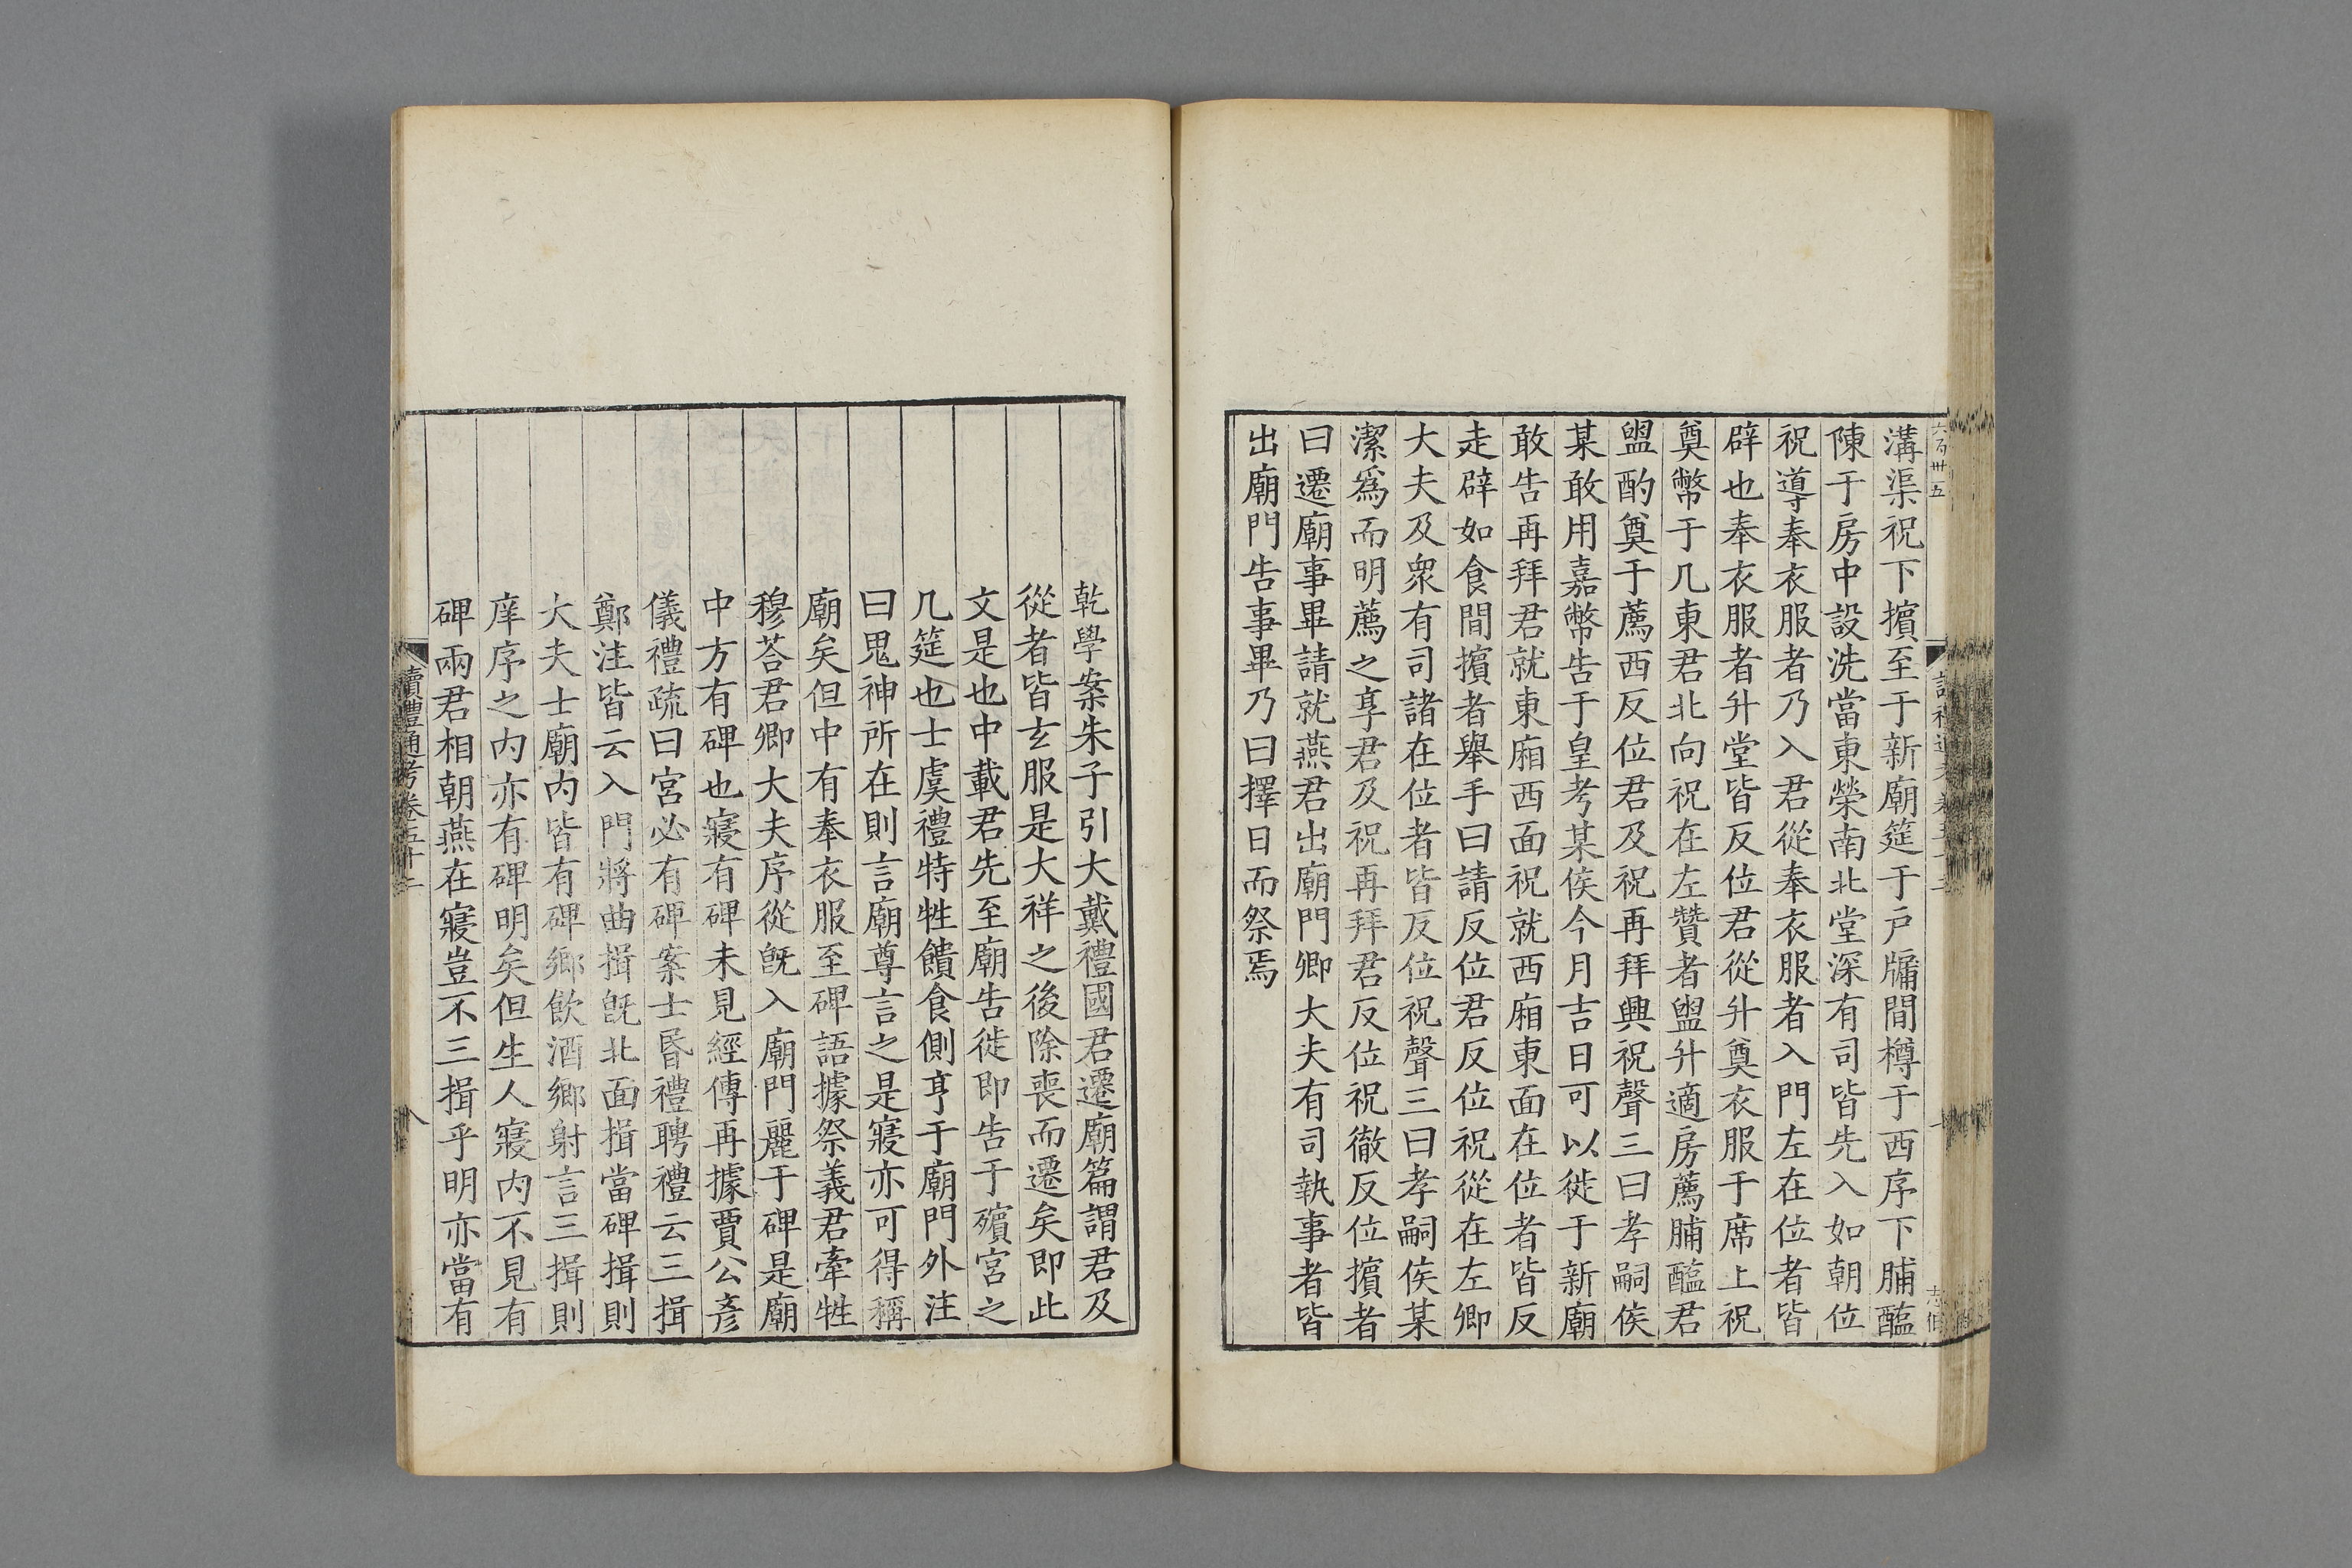 溝渠祝下擯至于新廟筵于戶牖間樽于西序下脯醢
陳于房中設洗當東榮南北堂深有司皆先入如朝位
祝導奉衣服者乃入君從奉衣服者入門左在位者皆
辟也奉衣服者升堂皆反位君從升奠衣服于席上祝
奠幣于几東君北向祝在左贊者盥升適房薦脯醢君
盥酌奠于薦西反位君及祝再拜興祝聲三曰孝嗣侯
某敢用嘉幣告于皇考某侯今月吉日可以徙于新廟
敢告再拜君就東廂西面祝就西廂東面在位者皆反
走辟如食間擯者舉手曰請反位君反位祝從在左卿
大夫及衆有司諸在位者皆反位祝聲三曰孝嗣侯某
潔爲而明薦之享君及祝再拜君反位祝徹反位擯者
曰遷廟事畢請就燕君出廟門卿大夫有司執事者皆
出廟門告事畢乃曰擇日而祭焉
乾學案朱子引大戴禮國君遷廟篇謂君及
從者皆玄服是大祥之後除喪而遷矣即此
文是也中載君先至廟告徙即告于殯宮之
几筵也士虞禮特牲饋食側亨于廟門外注
曰鬼神所在則言廟尊言之是寢亦可得稱
廟矣但中有奉衣服至碑語據祭義君牽牲
穆荅君卿大夫序從旣入廟門麗于碑是廟
中方有碑也寢有碑未見經傳再據賈公彥
儀禮疏曰宮必有碑案士昬禮聘禮云三揖
鄭注皆云入門將曲揖旣北面揖當碑揖則
大夫士廟內皆有碑鄉飲酒鄉射言三揖則
庠序之內亦有碑明矣但生人寢內不見有
碑兩君相朝燕在寢豈不三揖乎明亦當有
讀禮通考卷五十二
八
六百卅五